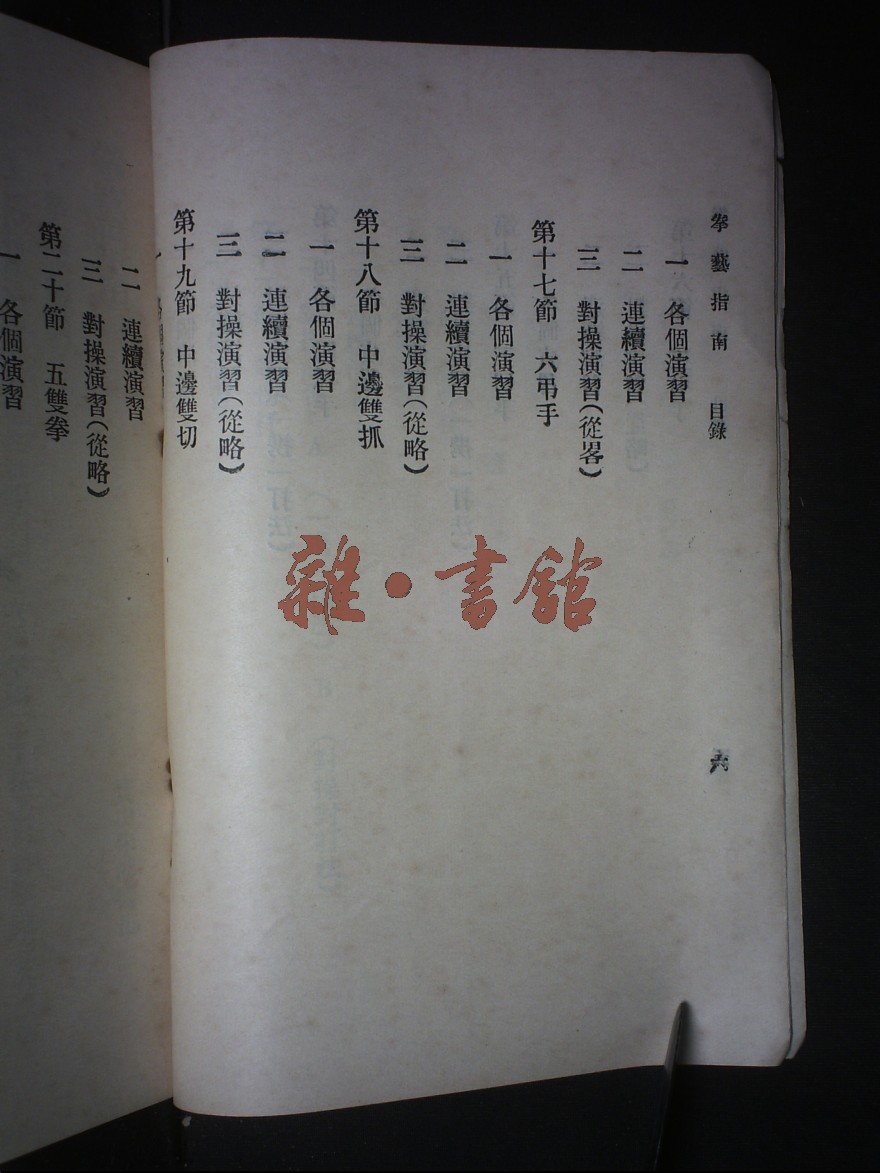 拳藝指南 目錄
一 各個演習
二 連續演習
三 對操演習(從畧)
第十七節 六弔手
一 各個演習
二 連續演習
三 對操演習(從略)
第十八節 中邊雙抓
一 各個演習
二 連續演習
三 對操演習(從略)
第十九節 中邊雙切
二 連續演習
三 對操演習(從略)
第二十節 五雙拳
一 各個演習
六
雜・書館